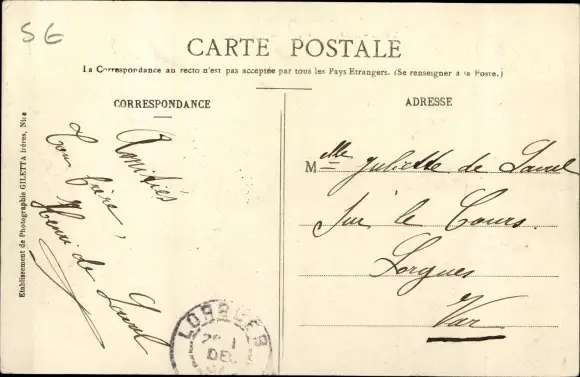 56
CARTE POSTALE
La Correspondance au recto n'est pas acceptée par tous les Pays Etrangers. (Se renseigner à la Poste.)
CORRESPONDANCE
Amitiés
Ton frère,
Henri de Laval
Etablissement de Photographie GILETTA frères, Nice
ADRESSE
Mlle Juliette de Laval
Sur le Cours.
Lorgues
Var
LORGUES
DEC